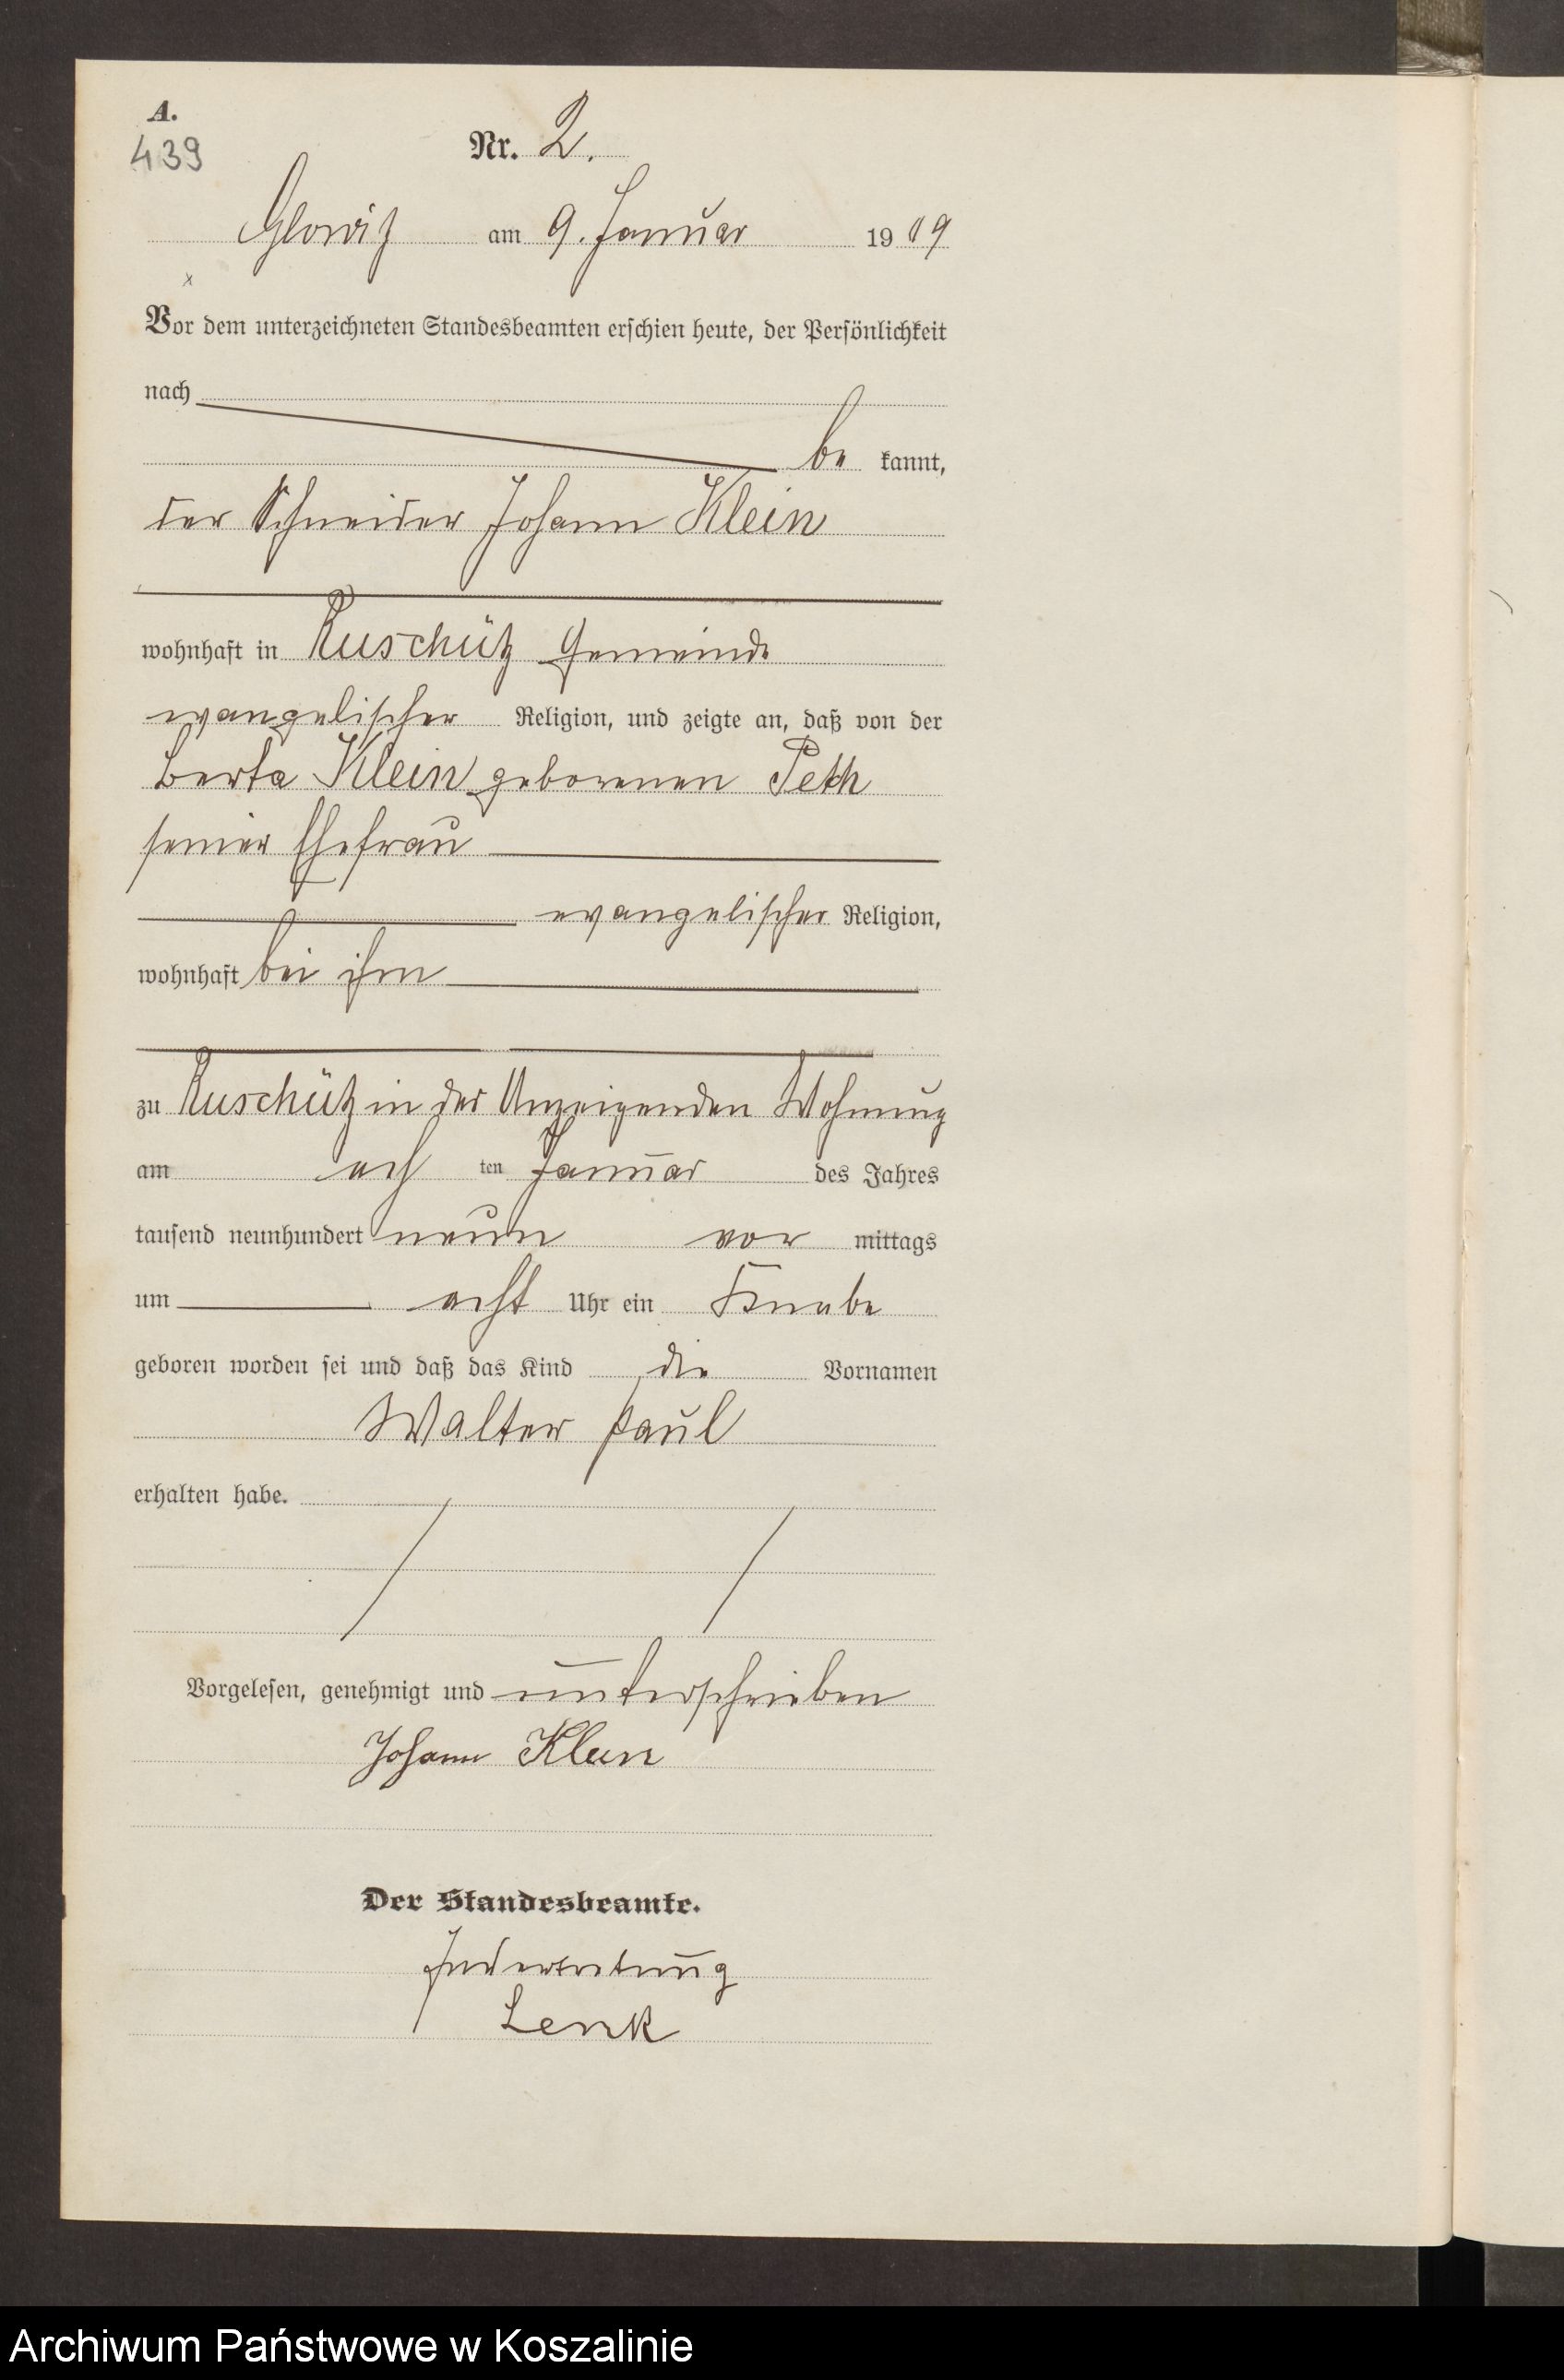 A.
439
Nr. 2.
Glowitz am 9. Januar 1909
Vor dem unterzeichneten Standesbeamten erschien heute, der Persönlichkeit
nach
be kannt,
der Schneider Johann Klein
wohnhaft in Ruschütz Gemeinde
evangelischer Religion, und zeigte an, daß von der
Berta Klein geborenen Peth
seiner Ehefrau
evangelischer Religion,
wohnhaft bei ihm
zu Ruschütz in der Anzeigenden Wohnung
am ach ten Januar des Jahres
tausend neunhundert neun vor mittags
um acht Uhr ein Knabe
geboren worden sei und daß das Kind die Vornamen
Walter Paul
erhalten habe.
Vorgelesen, genehmigt und unterschrieben
Johann Klein
Der Standesbeamte.
In Vertretung
Lenk
Archiwum Państwowe w Koszalinie